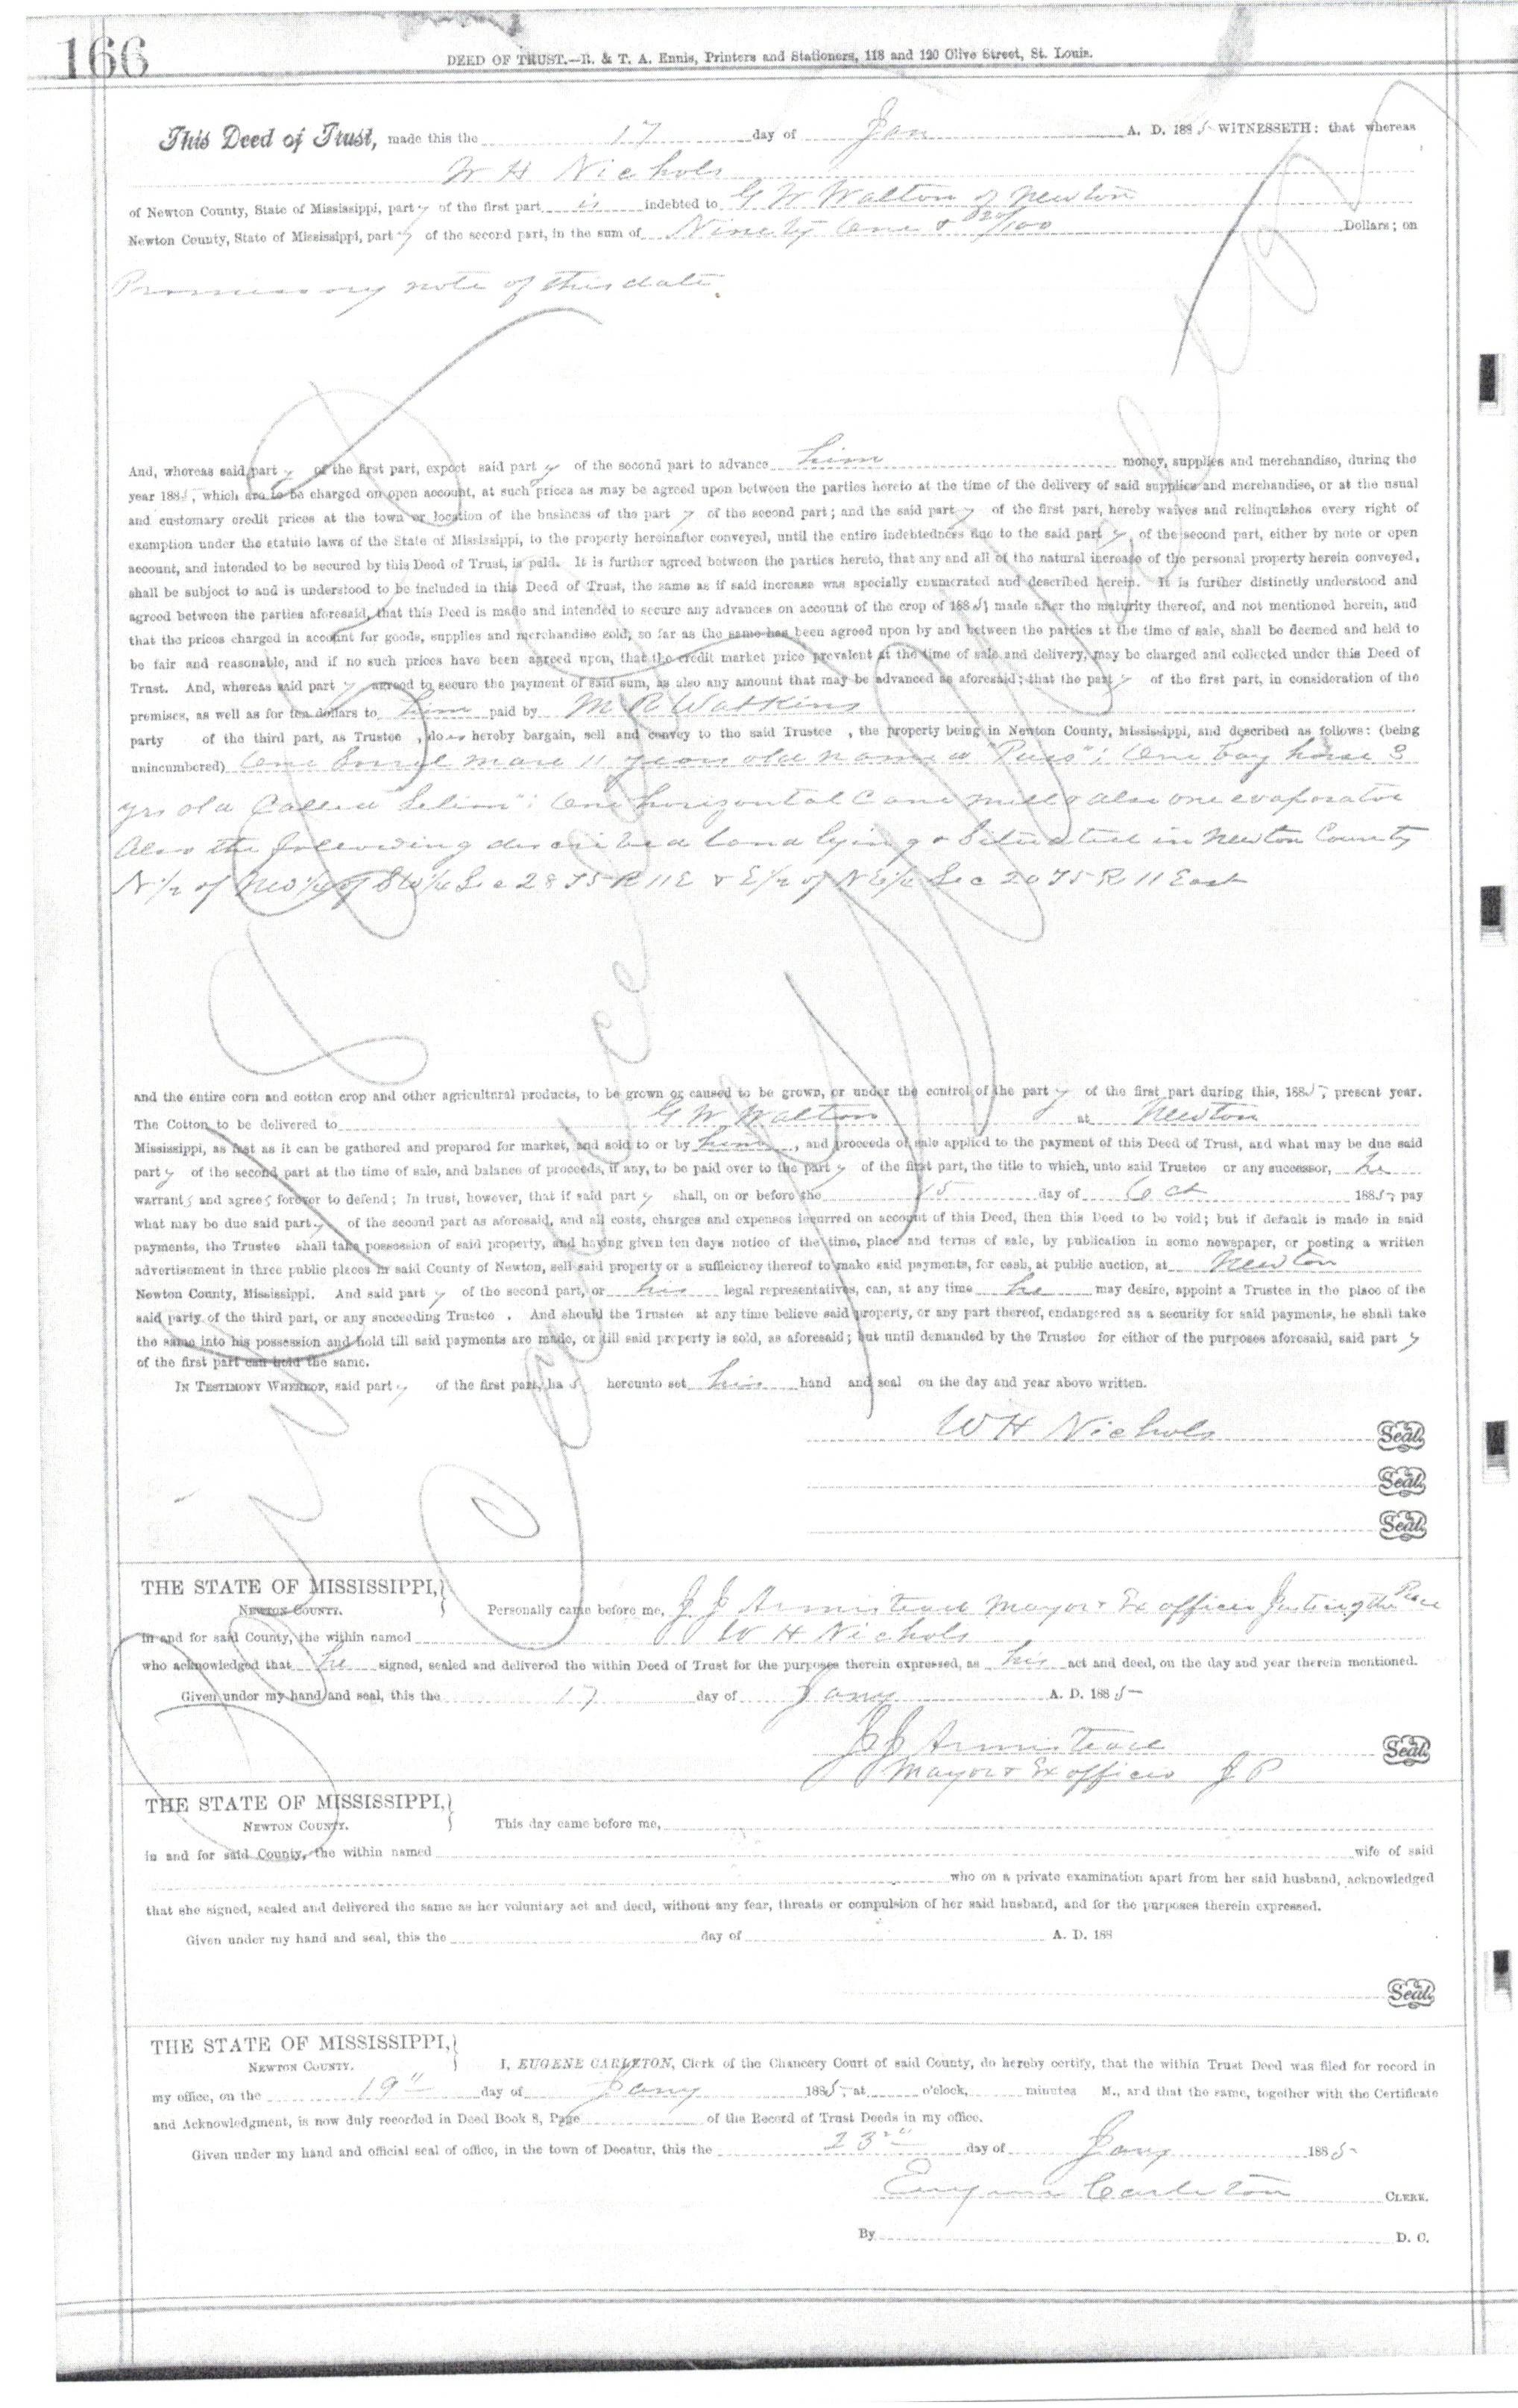 166
DEED OF TRUST.—R. & T. A. Ennis, Printers and Stationers, 118 and 120 Olive Street, St. Louis.
This Deed of Trust, made this the 17 day of Jan A. D. 1885 WITNESSETH: that whereas
W H Nichols
of Newton County, State of Mississippi, party of the first part is indebted to G W Walton of Newton
Newton County, State of Mississippi, party of the second part, in the sum of Ninety One & /100 Dollars; on
Promissory note of this date.
And, whereas said party of the first part, expect said party of the second part to advance him money, supplies and merchandise, during the
year 1885, which are to be charged on open account, at such prices as may be agreed upon between the parties hereto at the time of the delivery of said supplies and merchandise, or at the usual
and customary credit prices at the town or location of the business of the party of the second part; and the said party of the first part, hereby waives and relinquishes every right of
exemption under the statute laws of the State of Mississippi, to the property hereinafter conveyed, until the entire indebtedness due to the said party of the second part, either by note or open
account, and intended to be secured by this Deed of Trust, is paid. It is further agreed between the parties hereto, that any and all of the natural increase of the personal property herein conveyed,
shall be subject to and is understood to be included in this Deed of Trust, the same as if said increase was specially enumerated and described herein. It is further distinctly understood and
agreed between the parties aforesaid, that this Deed is made and intended to secure any advances on account of the crop of 1885, made after the maturity thereof, and not mentioned herein, and
that the prices charged in account for goods, supplies and merchandise sold, so far as the same has been agreed upon by and between the parties at the time of sale, shall be deemed and held to
be fair and reasonable, and if no such prices have been agreed upon, that the credit market price prevalent at the time of sale and delivery, may be charged and collected under this Deed of
Trust. And, whereas said party agreed to secure the payment of said sum, as also any amount that may be advanced as aforesaid; that the party of the first part, in consideration of the
premises, as well as for ten dollars to him paid by M R Watkins
party of the third part, as Trustee , do hereby bargain, sell and convey to the said Trustee , the property being in Newton County, Mississippi, and described as follows: (being
unincumbered) One Sorrel mare 11 years old named "Puss"; One bay horse 3
yrs old Called "Selim"; One horizontal Cane mill & also one evaporator
Also the following described land lying & Situated in Newton County
N 1/2 of NW 1/4 of SW 1/4 Sec 28 T5 R 11 E & E 1/2 of N E 1/4 Sec 20 T5 R 11 East
and the entire corn and cotton crop and other agricultural products, to be grown or caused to be grown, or under the control of the party of the first part during this, 1885, present year.
The Cotton to be delivered to G W Walton at Newton
Mississippi, as fast as it can be gathered and prepared for market, and sold to or by him, and proceeds of sale applied to the payment of this Deed of Trust, and what may be due said
party of the second part at the time of sale, and balance of proceeds, if any, to be paid over to the party of the first part, the title to which, unto said Trustee or any successor, he
warrants and agrees forever to defend; In trust, however, that if said party shall, on or before the 15 day of Oct 1885, pay
what may be due said party of the second part as aforesaid, and all costs, charges and expenses incurred on account of this Deed, then this Deed to be void; but if default is made in said
payments, the Trustee shall take possession of said property, and having given ten days notice of the time, place and terms of sale, by publication in some newspaper, or posting a written
advertisement in three public places in said County of Newton, sell said property or a sufficiency thereof to make said payments, for cash, at public auction, at Newton
Newton County, Mississippi. And said party of the second part, or his legal representatives, can, at any time he may desire, appoint a Trustee in the place of the
said party of the third part, or any succeeding Trustee . And should the Trustee at any time believe said property, or any part thereof, endangered as a security for said payments, he shall take
the same into his possession and hold till said payments are made, or till said property is sold, as aforesaid; but until demanded by the Trustee for either of the purposes aforesaid, said party
of the first part can hold the same.
IN TESTIMONY WHEREOF, said party of the first part, has hereunto set his hand and seal on the day and year above written.
W H Nichols Seal
Seal
Seal
THE STATE OF MISSISSIPPI,
NEWTON COUNTY. Personally came before me, J J Armistead Mayor & Ex officio Justice of the Peace
in and for said County, the within named W H Nichols
who acknowledged that he signed, sealed and delivered the within Deed of Trust for the purposes therein expressed, as his act and deed, on the day and year therein mentioned.
Given under my hand and seal, this the 17 day of Jany A. D. 1885
J J Armistead Seal
Mayor & Ex officio J P
THE STATE OF MISSISSIPPI,
NEWTON COUNTY. This day came before me,
in and for said County, the within named wife of said
who on a private examination apart from her said husband, acknowledged
that she signed, sealed and delivered the same as her voluntary act and deed, without any fear, threats or compulsion of her said husband, and for the purposes therein expressed.
Given under my hand and seal, this the day of A. D. 188
Seal
THE STATE OF MISSISSIPPI,
NEWTON COUNTY. I, EUGENE CARLETON, Clerk of the Chancery Court of said County, do hereby certify, that the within Trust Deed was filed for record in
my office, on the 19" day of Jany 1885, at o'clock, minutes M., and that the same, together with the Certificate
and Acknowledgment, is now duly recorded in Deed Book 8, Page of the Record of Trust Deeds in my office.
Given under my hand and official seal of office, in the town of Decatur, this the 23" day of Jany 1885
Eugene Carleton CLERK.
By D. C.